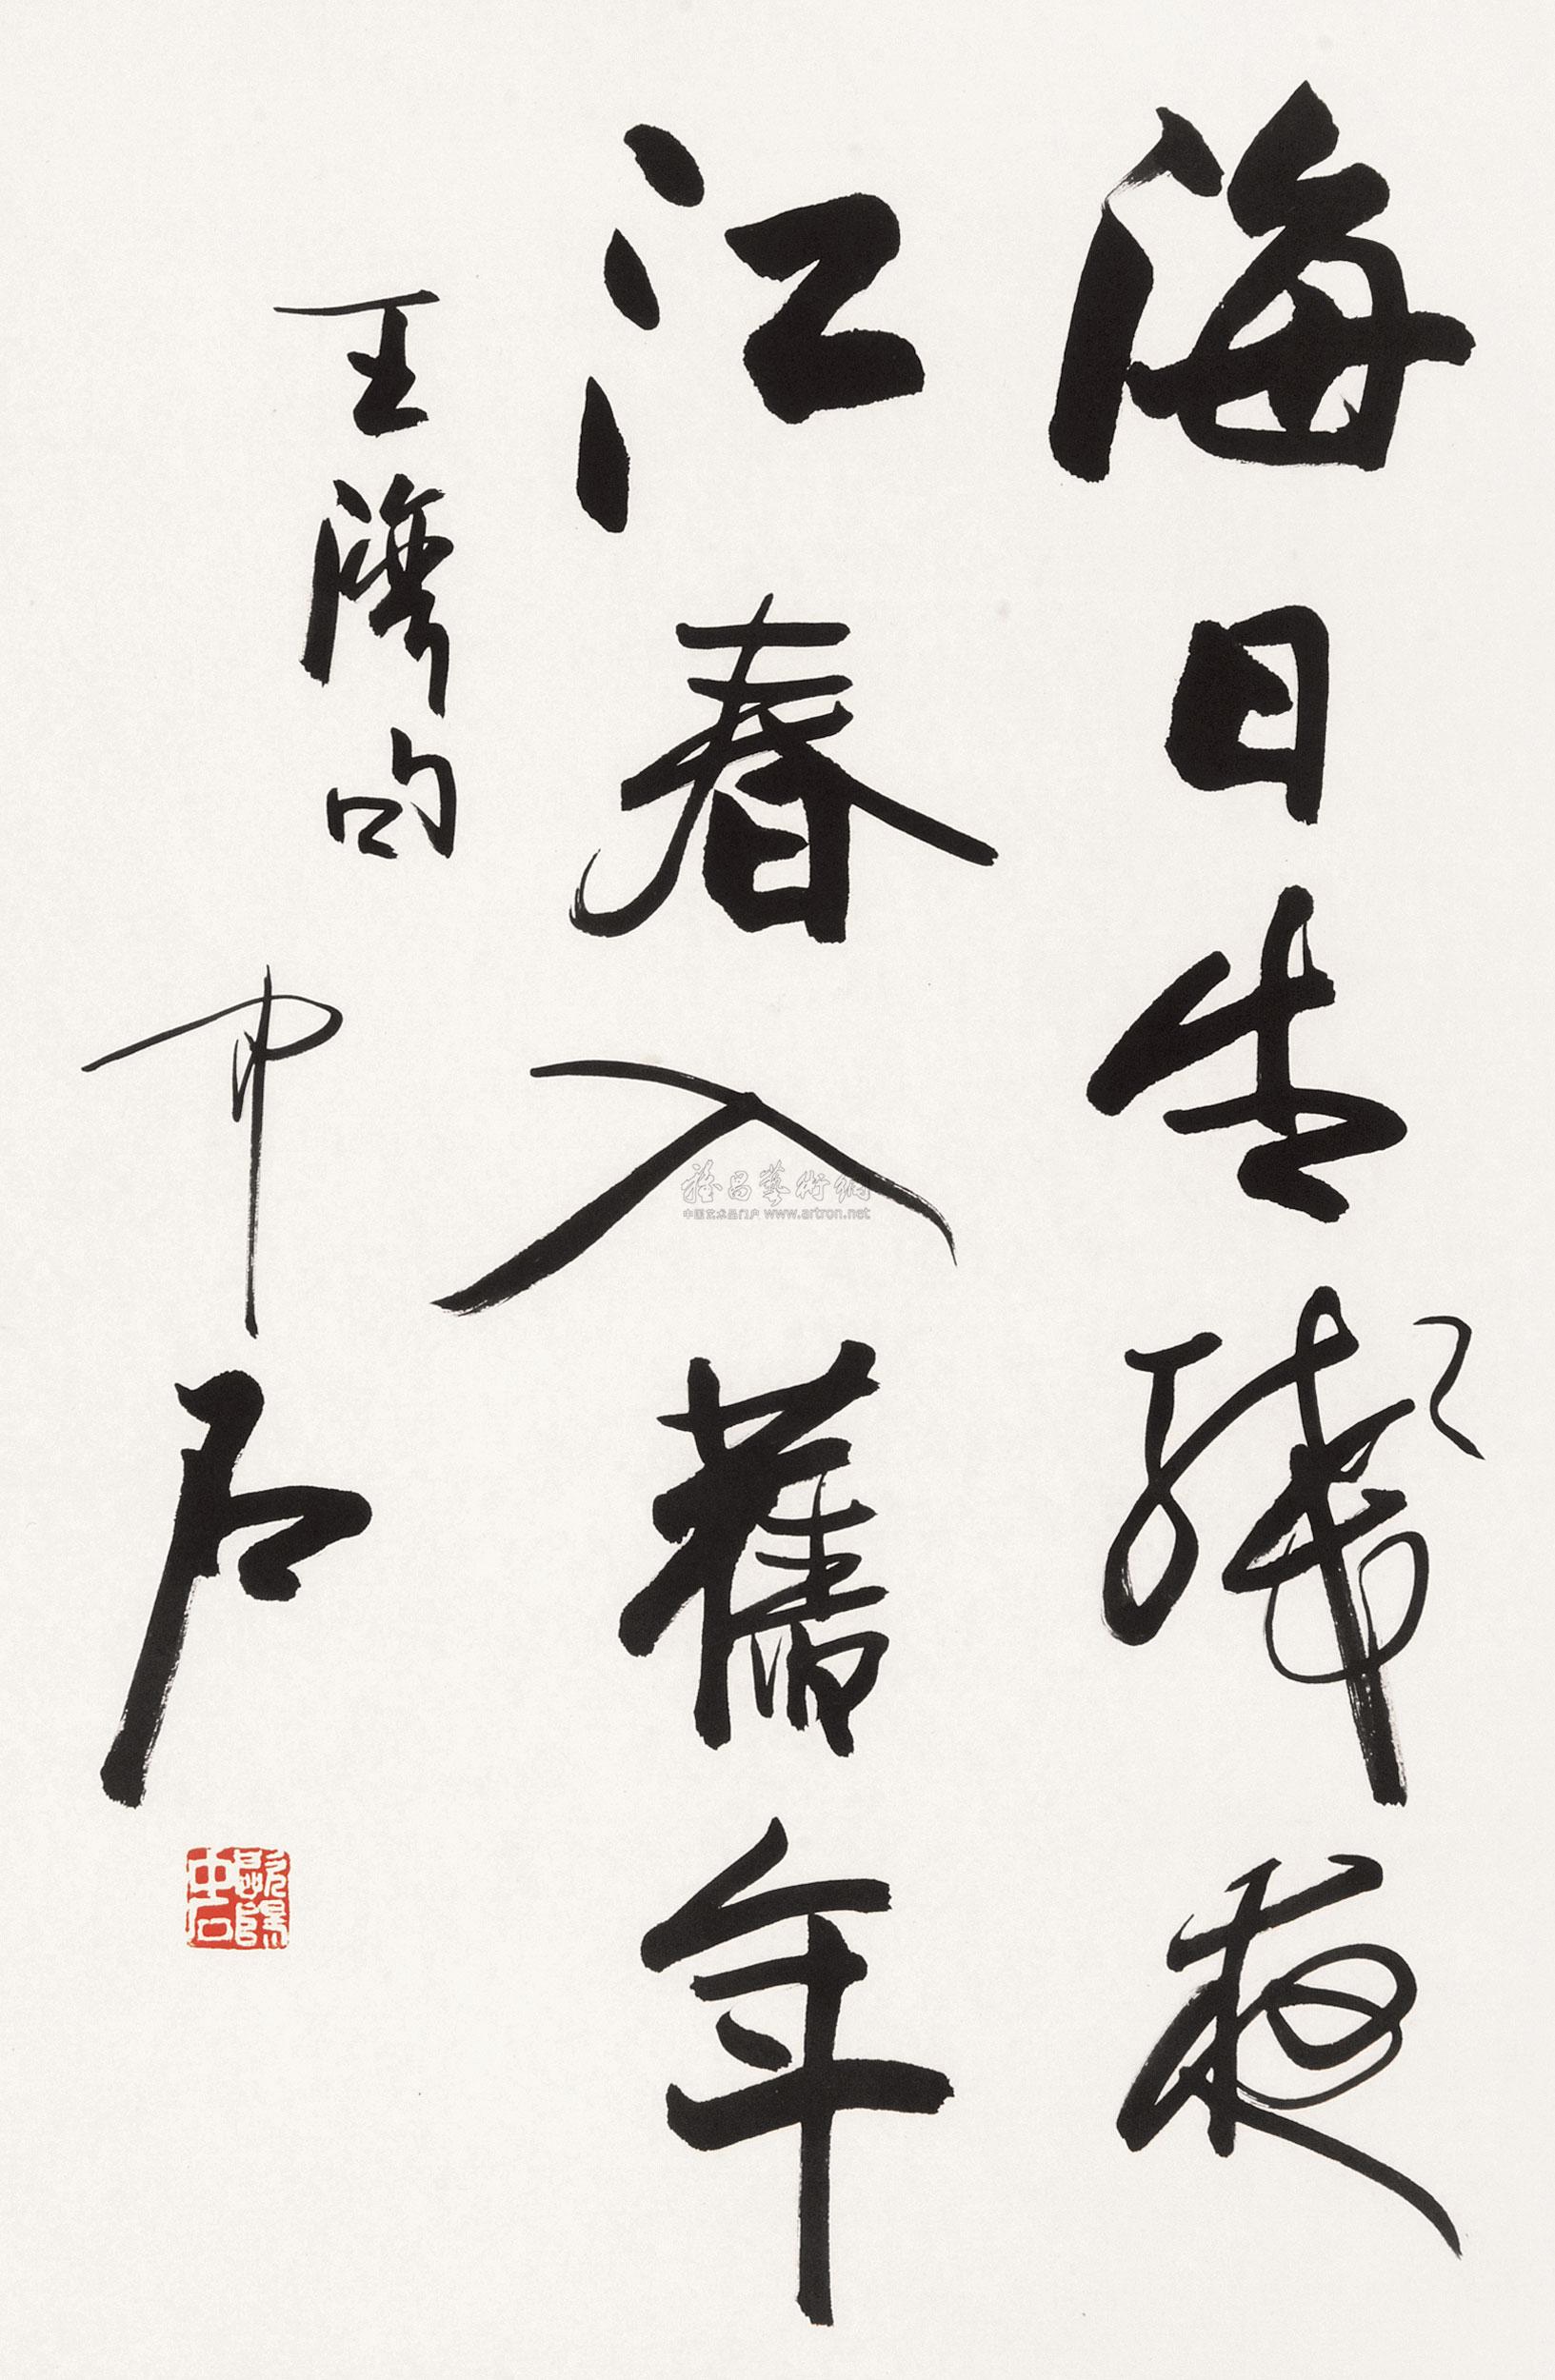 海日生殘夜
江春入舊年
王灣句
中石
歐陽中石
雅昌藝術網
中国艺术品门户 www.artron.net